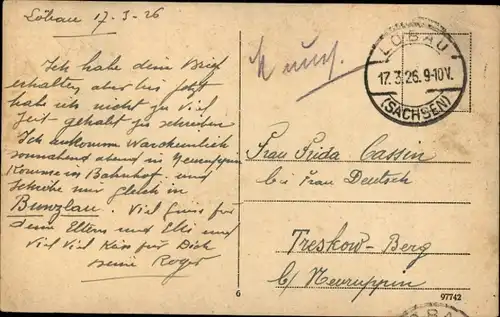 Löbau 17-3-26
Ich habe dein Brief
erhalten, aber bis Jetzt
habe ich nicht zu viel
Zeit gehabt zu schreiben
Ich ankomm Warscheinlich
sonnabend abend in Neuruppin
Komme in Bahnhof. und
Schreibe mir gleich in
Bunzlau. Viel Gruss für
deine Eltern und Elli und
Viel Viel Küss für Dich
Roger
LÖBAU
17.3.26.9-10V.
(SACHSEN)
Frau Frida Cassin
bei Frau Deutsch
Treskow-Berg
b/ Neuruppin
6
97742